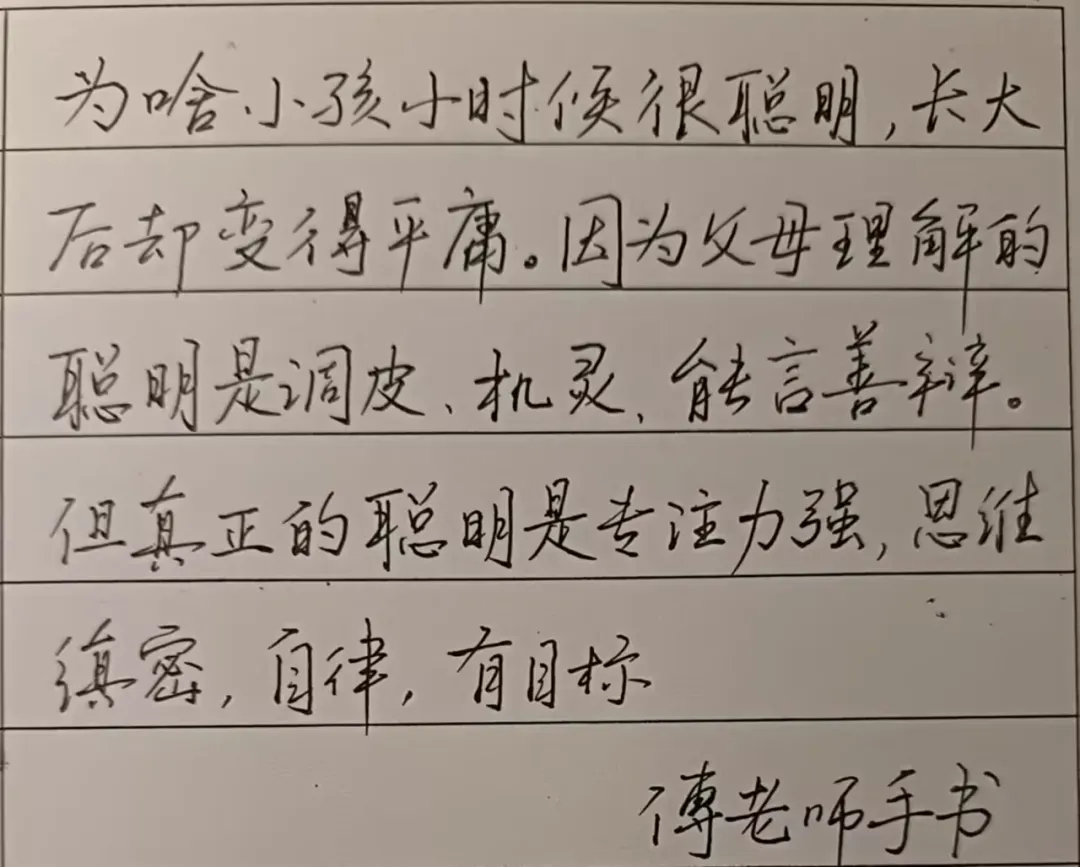 为啥小孩小时候很聪明,长大
后却变得平庸。因为父母理解的
聪明是调皮、机灵、能言善辩。
但真正的聪明是专注力强,思维
缜密,自律,有目标
傅老师手书